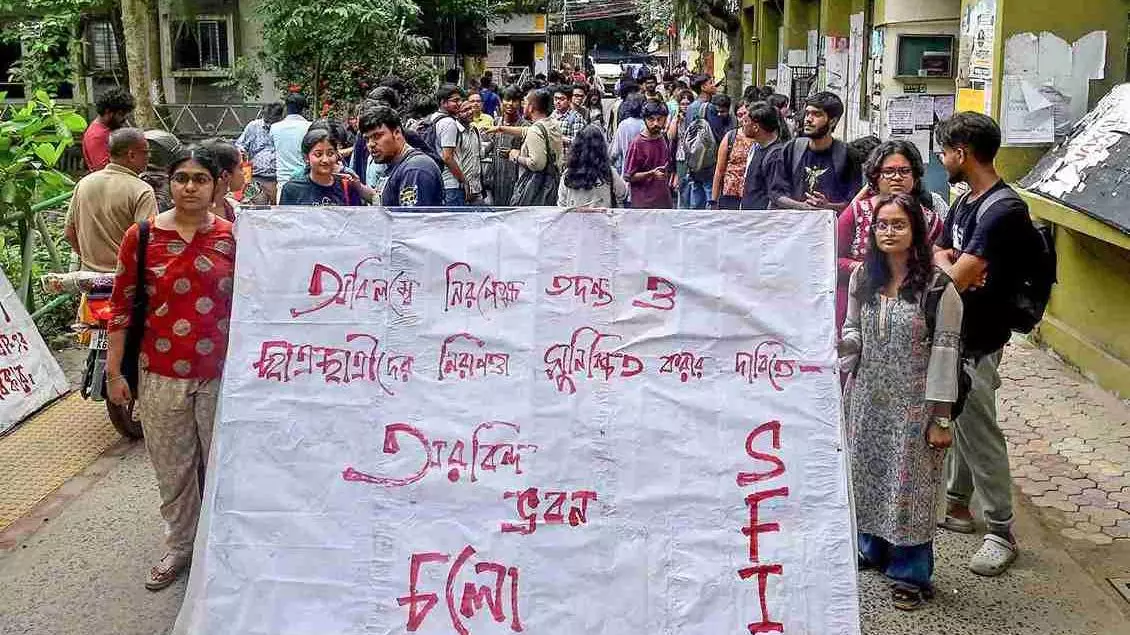 অবিলম্বে নিরপেক্ষ তদন্ত ও
ছাত্রছাত্রীদের নিরাপত্তা সুনিশ্চিত করার দাবিতে-
অরবিন্দ
ভবন
চলো
SFI